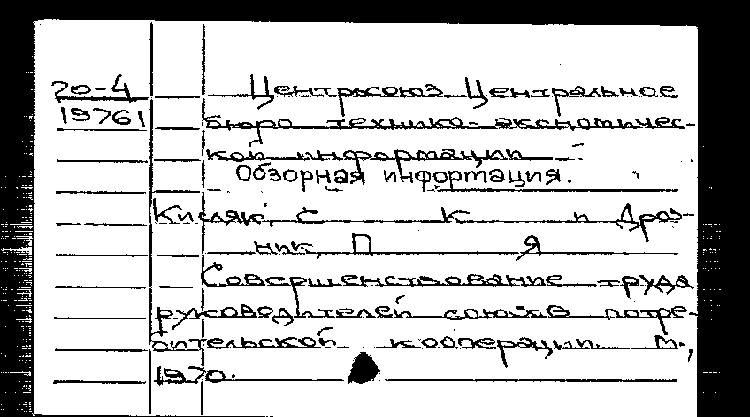 70-4
19761
Центросоюз Центральное
бюро технико-экономичес-
кой информации.
Обзорная информация.
Кисляк, С К и Дроз-
ник, П Я
Совершенствование труда
руководителей союзов потре-
бительской кооперации. М.,
1970.